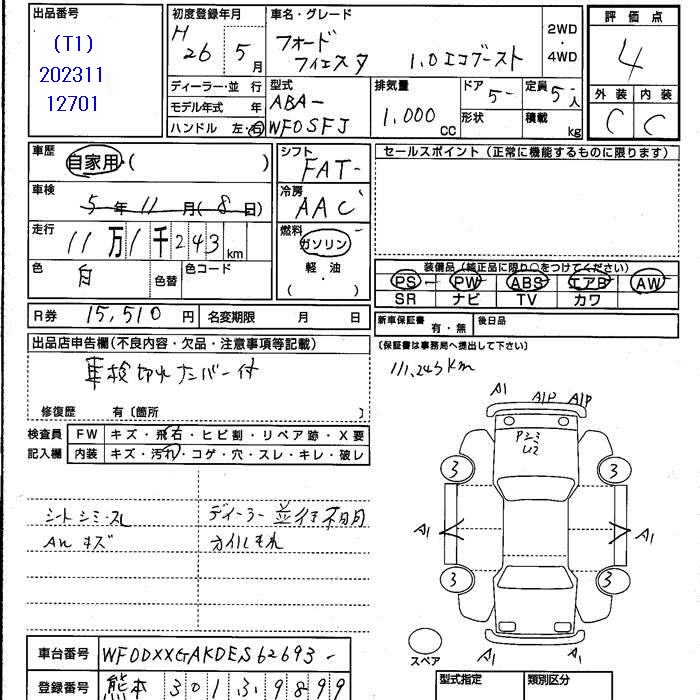 出品番号
(T1)
202311
12701
初度登録年月
H 26 年 5 月
車名・グレード
フォード
フィエスタ 1.0 エコブースト
2WD
・
4WD
評価点
4
外装 内装
C C
ディーラー・並行
モデル年式 年
ハンドル 左・右
型式
ABA-
WF0SFJ
排気量
1,000 cc
ドア 5-
定員 5- 人
形状
積載 kg
車歴
自家用・( )
車検
5年11月(8日)
走行
11万1千243 km
色
白
色替
色コード
シフト
FAT-
冷房
AAC
燃料
ガソリン
軽・油
( ・ )
セールスポイント (正常に機能するものに限ります)
装備品 (純正品に限り○をつけてください)
PS PW ABS エアB AW
SR ナビ TV カワ
R券 15,510 円
名変期限 月 日
新車保証書 有・無
後日品
(保証書は事務局へ提出して下さい)
出品店申告欄(不良内容・欠品・注意事項等記載)
車検切れナンバー付
111,243km
修復歴 有〔箇所 〕
検査員
記入欄
FW キズ・飛石・ヒビ割・リペア跡・X要
内装 キズ・汚れ・コゲ・穴・スレ・キレ・破レ
シートシミ・スレ
ディーラー並行不明
A1 A1P A1P
3 3
A1 A1
3 3
A1 A1
スペア
車台番号 WF0DXXGAKDES62693-
登録番号 熊本 301 9899
型式指定 類別区分